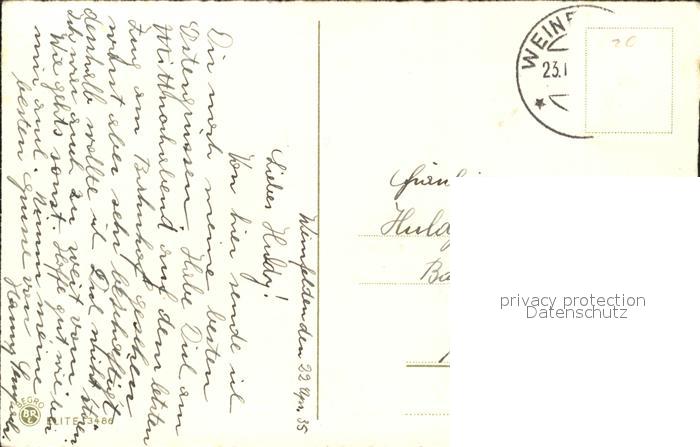 Weinfelden den 22 Apr. 35
Liebes Huldy!
Von hier sende ich
Dir noch meine besten
Ostergrüssen. Habe Dich am
Mittwochabend auf dem letzten
Zug am Bahnhof gesehen
warst aber sehr beschäftigt
deshalb wollte ich Dich nicht stören
Ich war auch zu weit vorn.
Wie gehts sonst. Hoffe gut wie bei
mir auch. Nimm meine
besten Grüsse von
WEINF
23.I
20
Fräulein
Huldy
Ba
privacy protection
Datenschutz
BEGRO
ELITE 3486